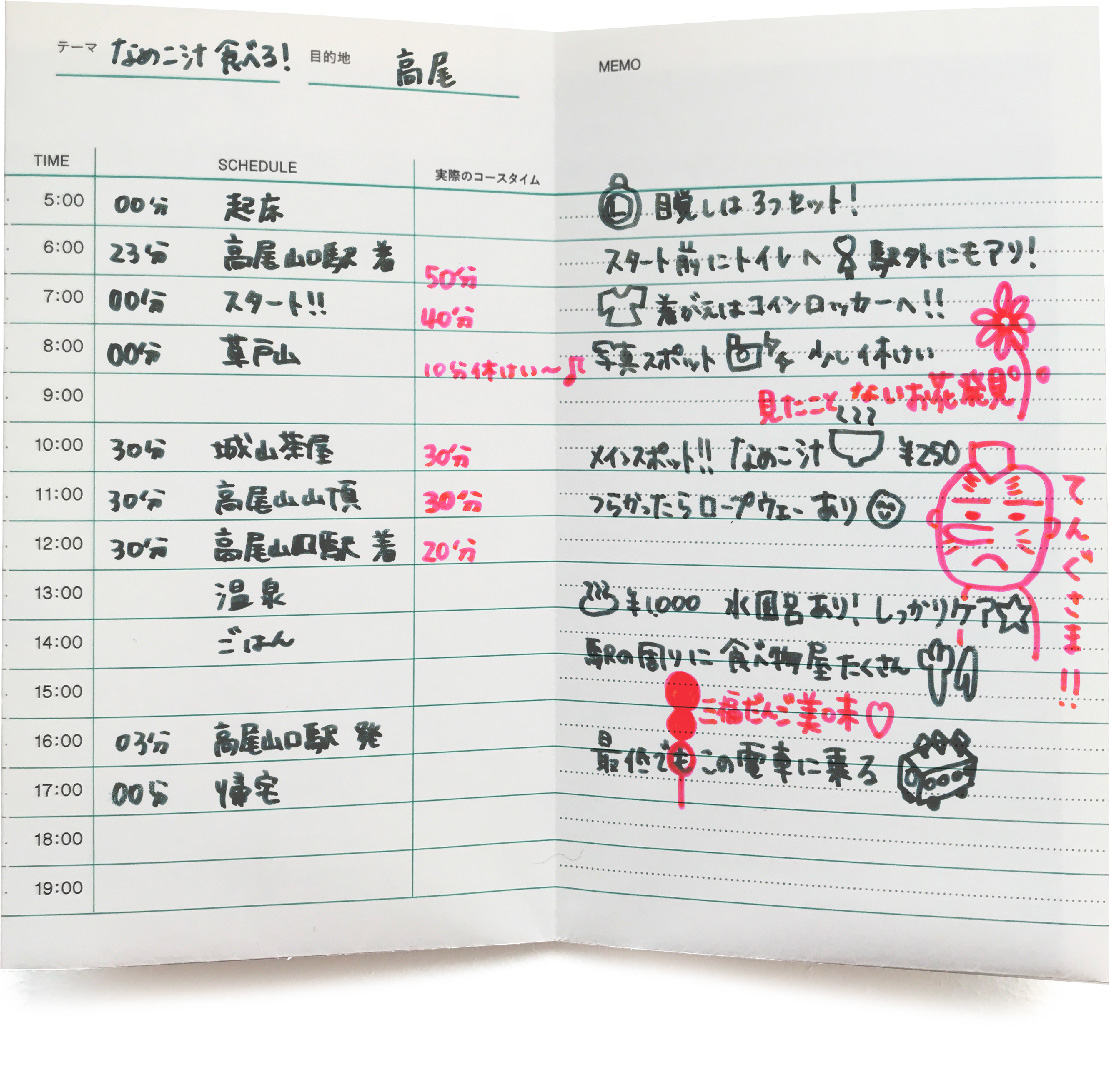 テーマ なめこ汁 食べろ! 目的地 高尾
MEMO
TIME SCHEDULE 実際のコースタイム
5:00 00分 起床 目覚しは 3つセット!
6:00 23分 高尾山口駅 着 50分 スタート前にトイレへ 駅外にもアリ!
7:00 00分 スタート!! 40分 着がえはコインロッカーへ!!
8:00 00分 草戸山 10分休けい〜♪ 写真スポット 少し休けい
9:00 見たことないお花発見
10:00 30分 城山茶屋 30分 メインスポット!! なめこ汁 ¥250
11:00 30分 高尾山山頂 30分 つらかったらロープウェーあり
てんぐさま!!
12:00 30分 高尾山口駅 着 20分
13:00 温泉 ¥1,000 水風呂あり! しっかりケア☆
14:00 ごはん 駅の周りに食べ物屋たくさん
15:00 三福だんご美味♡
16:00 03分 高尾山口駅 発 最低でもこの電車に乗る
17:00 00分 帰宅
18:00
19:00